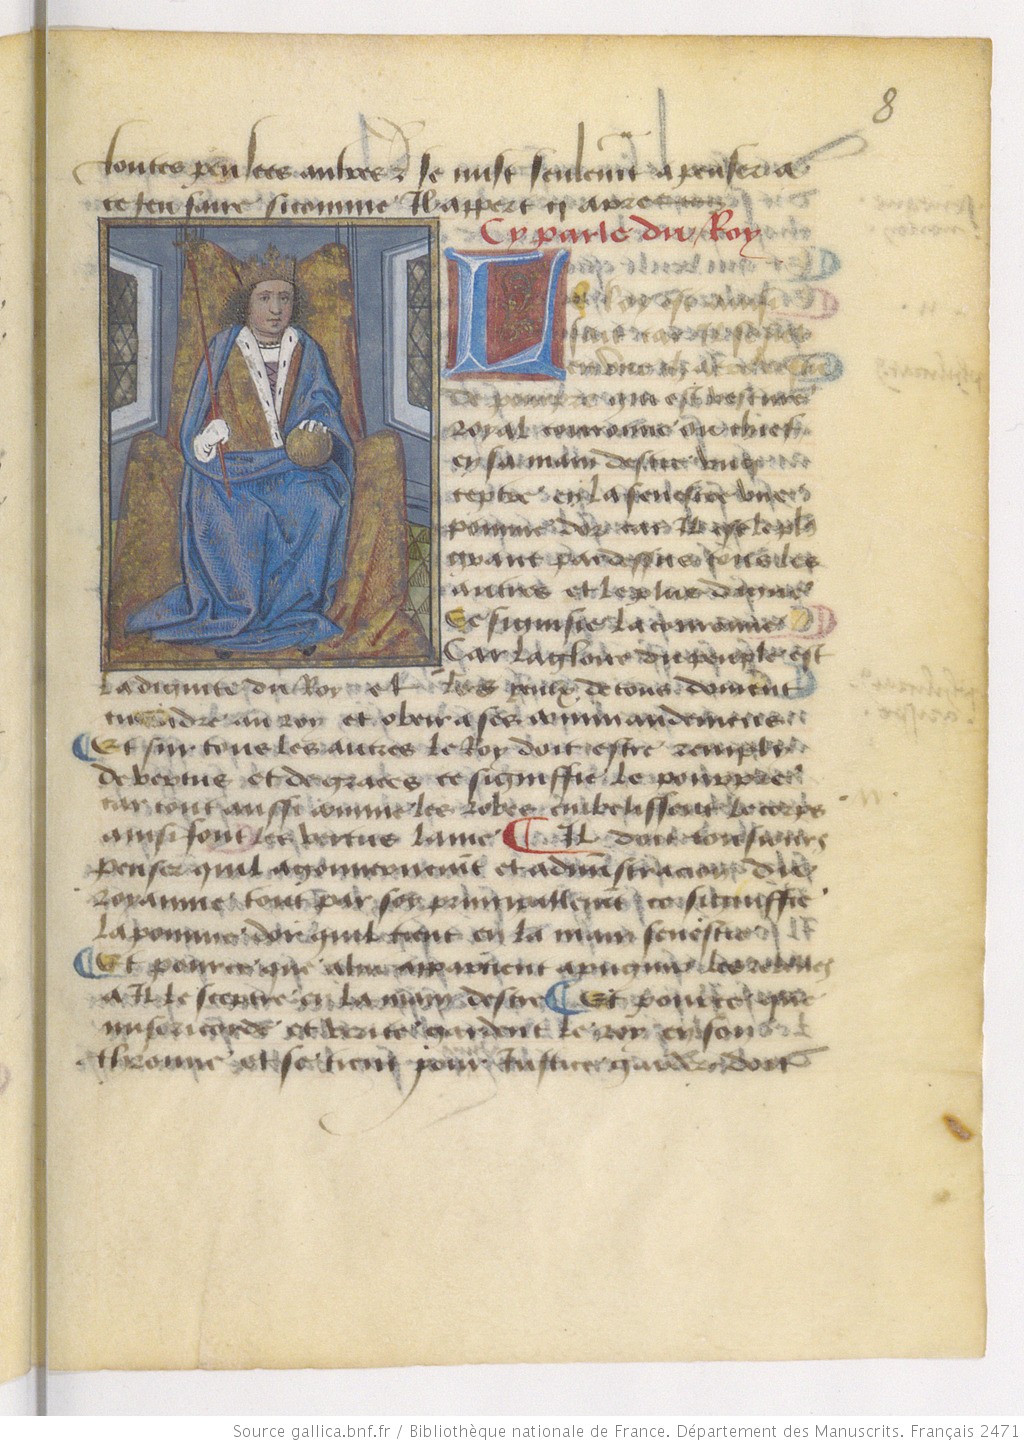 8
toutes pensees autres Se mist seulemt a penser a
ce jeu faire sicomme Il appert cy apres
Cy parle du Roy
L
de pourpre qui est vesture
Royal couronne ou chief
en sa main destre ung
ceptre en la senestre une
pomme dor car Il est le pl9
grant par dessus tous les
autres et le plus digne
Ce signifie la couronne
Car la gloire du peuple est
la dignite du Roy et les yeulx de tous doivent
au roy et obeir a ses commandemens
Et sur tous les autres le Roy doit estre remply
de vertus et de graces ce signiffie le pourpre
car tout aussi comme les robes embelissent le corps
ainsi font les vertus lame Il doit tousiours
penser quil a gouvernemt et administracion du
royaume tout par soy principallemt ce signiffie
la pomme dor quil tient en la main senestre
Et pource que a luy appartient a pugnir les rebelles
a Il le sceptre en la main destre Et pource que
misericorde et verite gardent le roy en son
throune et se tient pour Justice garder doit
Source gallica.bnf.fr / Bibliothèque nationale de France. Département des Manuscrits. Français 2471